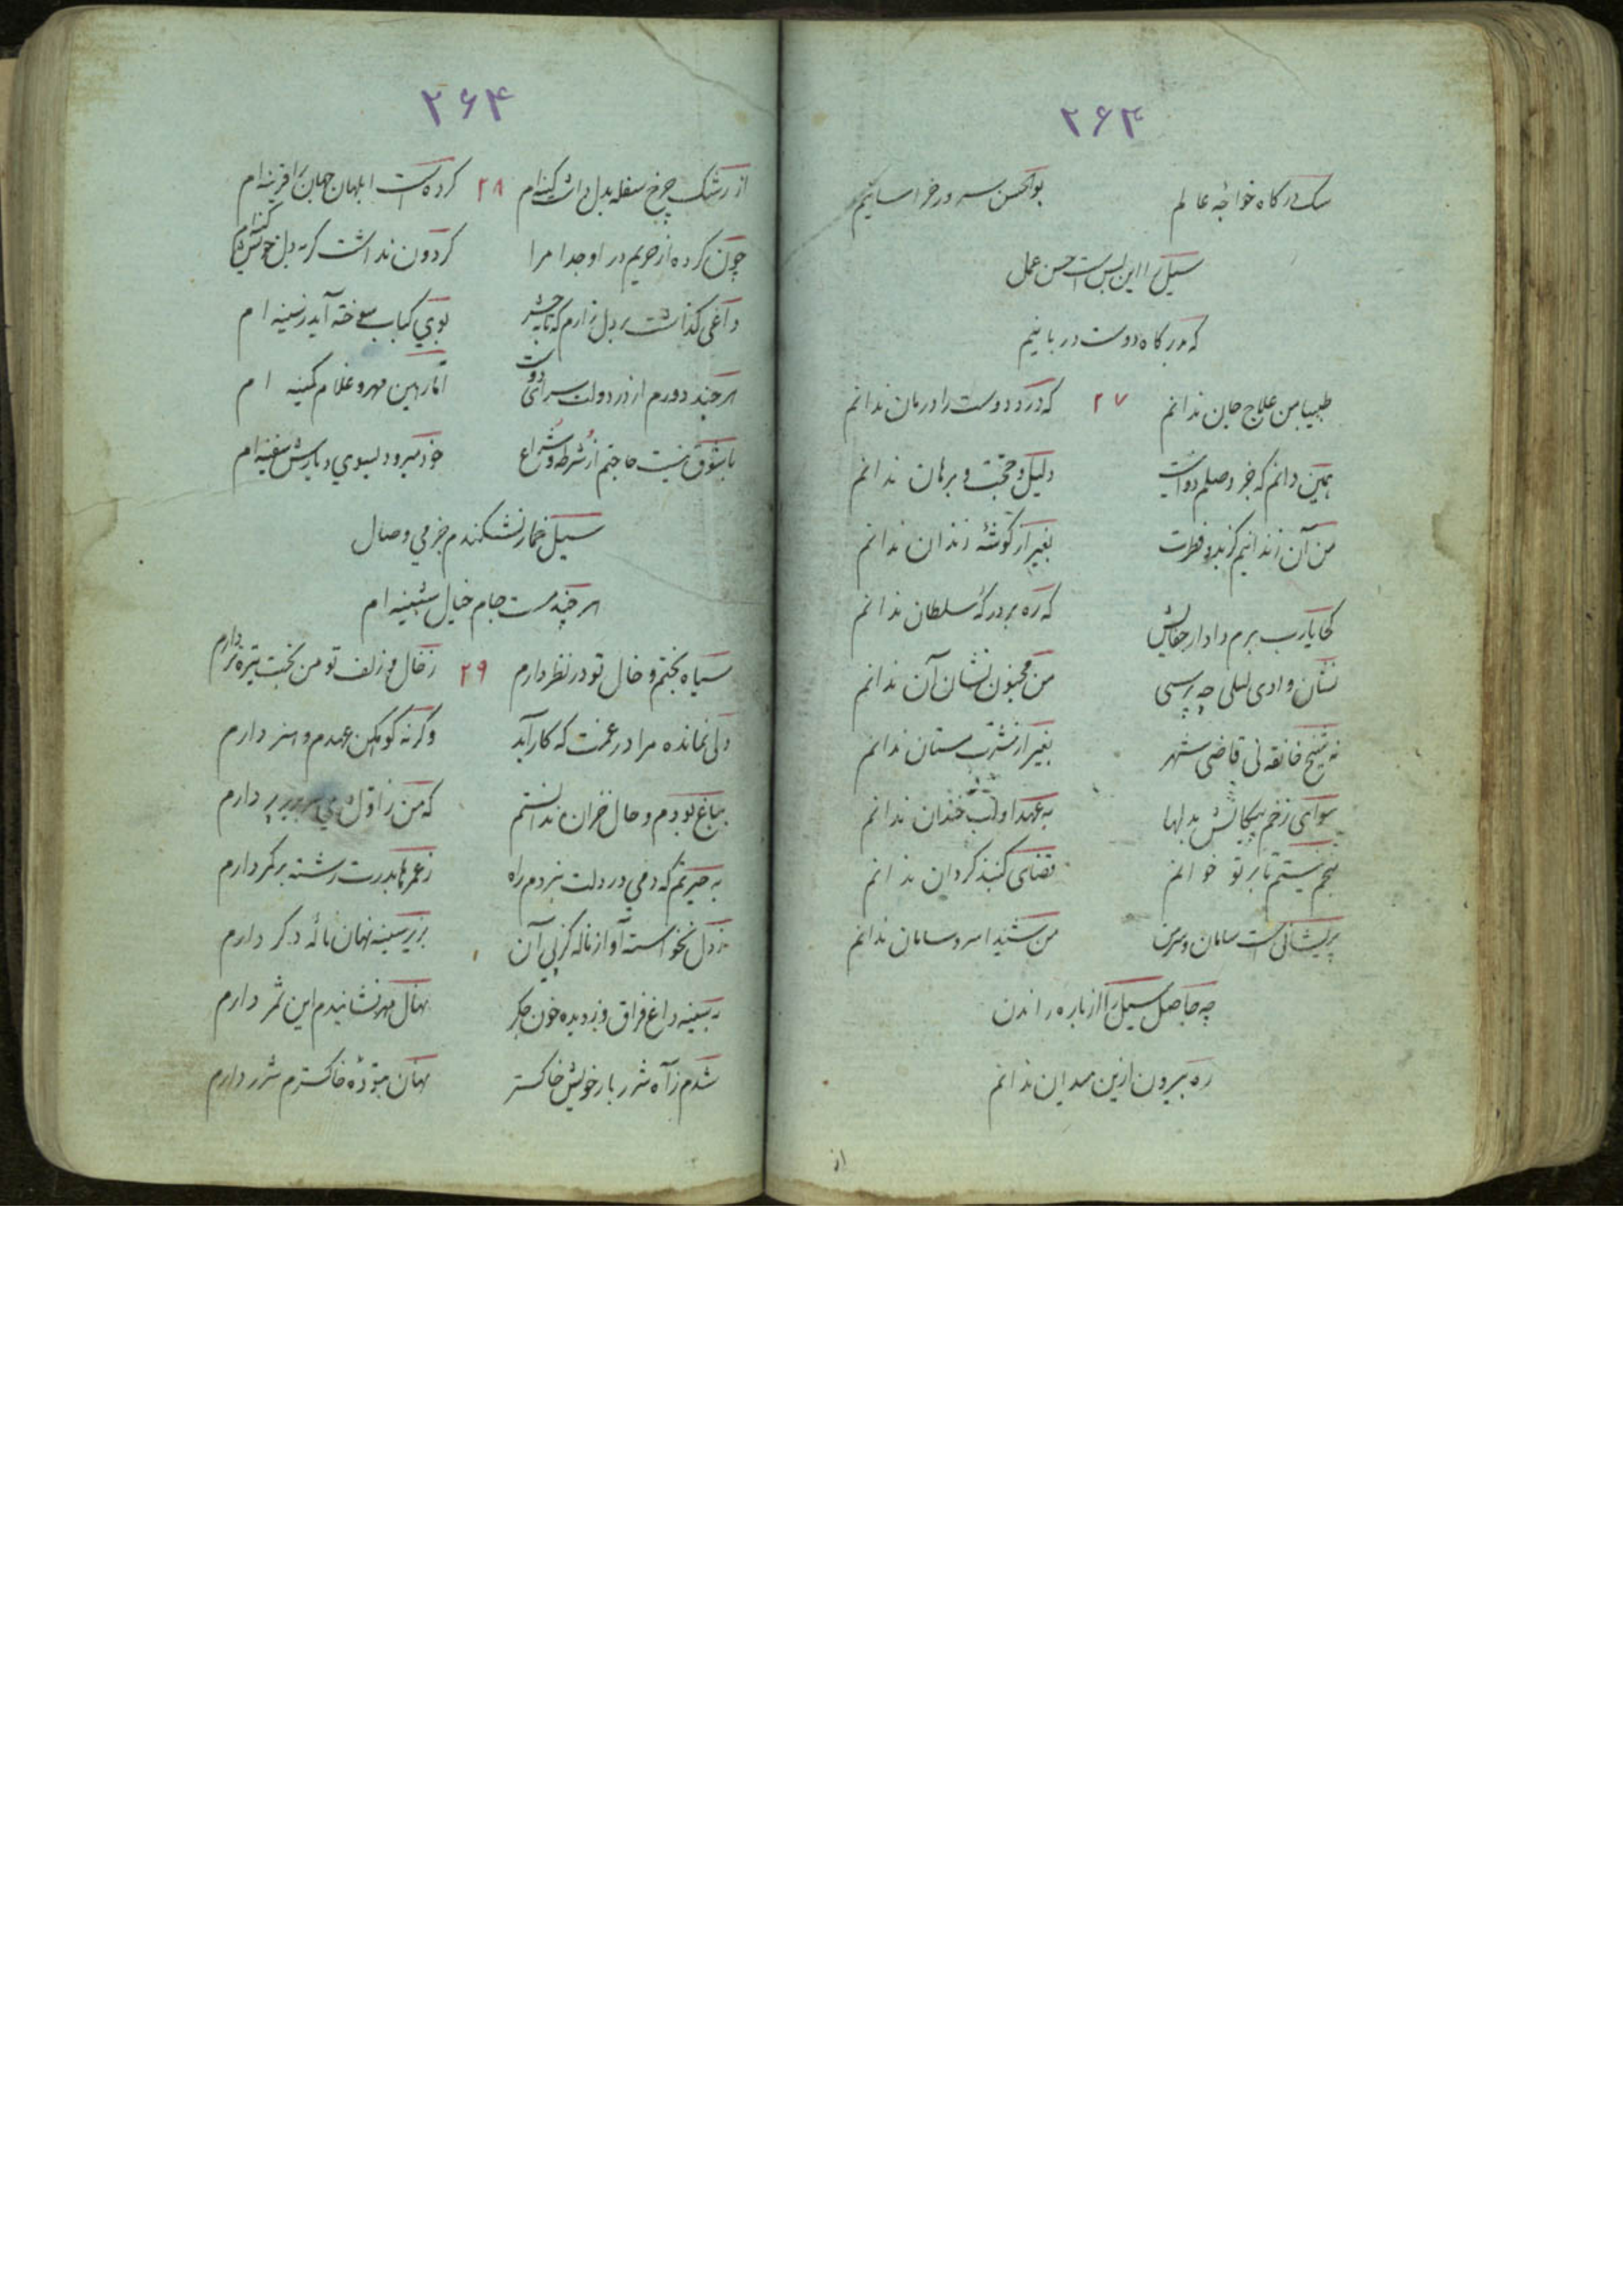 ۲۶۳
سگ درگاه خواجه عالم بوالحسن سرور خراسانیم
سیل را این بس است حسن عمل
که بدرگاه دوست دربانیم
طبیبا من علاج جان ندانم ۲۷ که درد دوست را درمان ندانم
همین دانم که جز وصلم دوا نیست دلیل و حجت و برهان ندانم
من آن زندانیم کز بدو فطرت بغیر از گوشه زندان ندانم
کجا یارب برم داد از جفایش که ره بر درگه سلطان ندانم
نشان وادی لیلی چه پرسی من مجنون نشان آن ندانم
نه شیخ خانقه نی قاضی شهر بغیر از مشرب مستان ندانم
سوای زخم پیکانش بدلها به عهد او لب خندان ندانم
نیستم تا بر تو خوانم قضای گنبد گردان ندانم
پریشانی است سامان و سر من شیدا سر و سامان ندانم
چه حاصل سیل را از باره راندن
ره بیرون ازین میدان ندانم
از
۲۶۴
از رشک چرخ سفله بدل داشت کینه‌ام ۲۸ کرده است ابلهان جهان را قرینه‌ام
چون کرده از حریم در او جدا مرا گردون نداشت گر به دل خویش کینه‌ام
داغی گذاشت بر دل زارم که تا به حشر بوی کباب سوخته آید ز سینه‌ام
هر چند دورم از در دولت سرای دوست اما رهین مهر و غلام کمینه‌ام
با شوق نیست حاجتم از شرطه و شراع خود میرود بسوی دیارش سفینه‌ام
سیل خمار نشکندم جز می وصال
هر چند مست جام خیال شبینه‌ام
سیاه بختم و خال تو در نظر دارم ۲۹ ز خال و زلف تو من بخت تیره‌تر دارم
دلی نمانده مرا در غمت که کار آید وگرنه کوهکن عهدم و هنر دارم
بباغ بودم و حال خزان ندانستم که من ز اول دارم
به حیرتم که دمی در دلت نبردم راه ز عمرها بدرت رشته بر کمر دارم
ز دل نخواسته آواز ناله کز پی آن بزیر سینه نهان ناله دگر دارم
به سینه داغ فراق و ز دیده خون جگر نهال مهر نشانیدم این ثمر دارم
شدم ز آه شرربار خویش خاکستر نهان بتوده خاکسترم شرر دارم